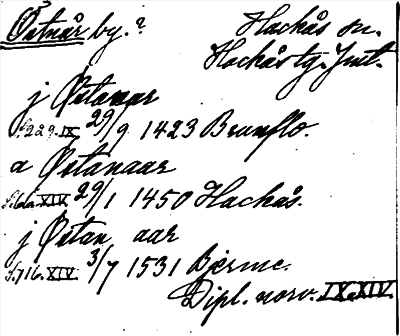 Östnår by.? Hackås sn.
Hackåstg. Jmt.
j Østanar
S.229.IX. 29/9 1423 Brunflo.
a Østanaar
XIV 29/1 1450 Hackås.
j Østan, aar
S.716. XIV. 3/7 1531 Bjerme.
Dipl. norv. IX. XIV.